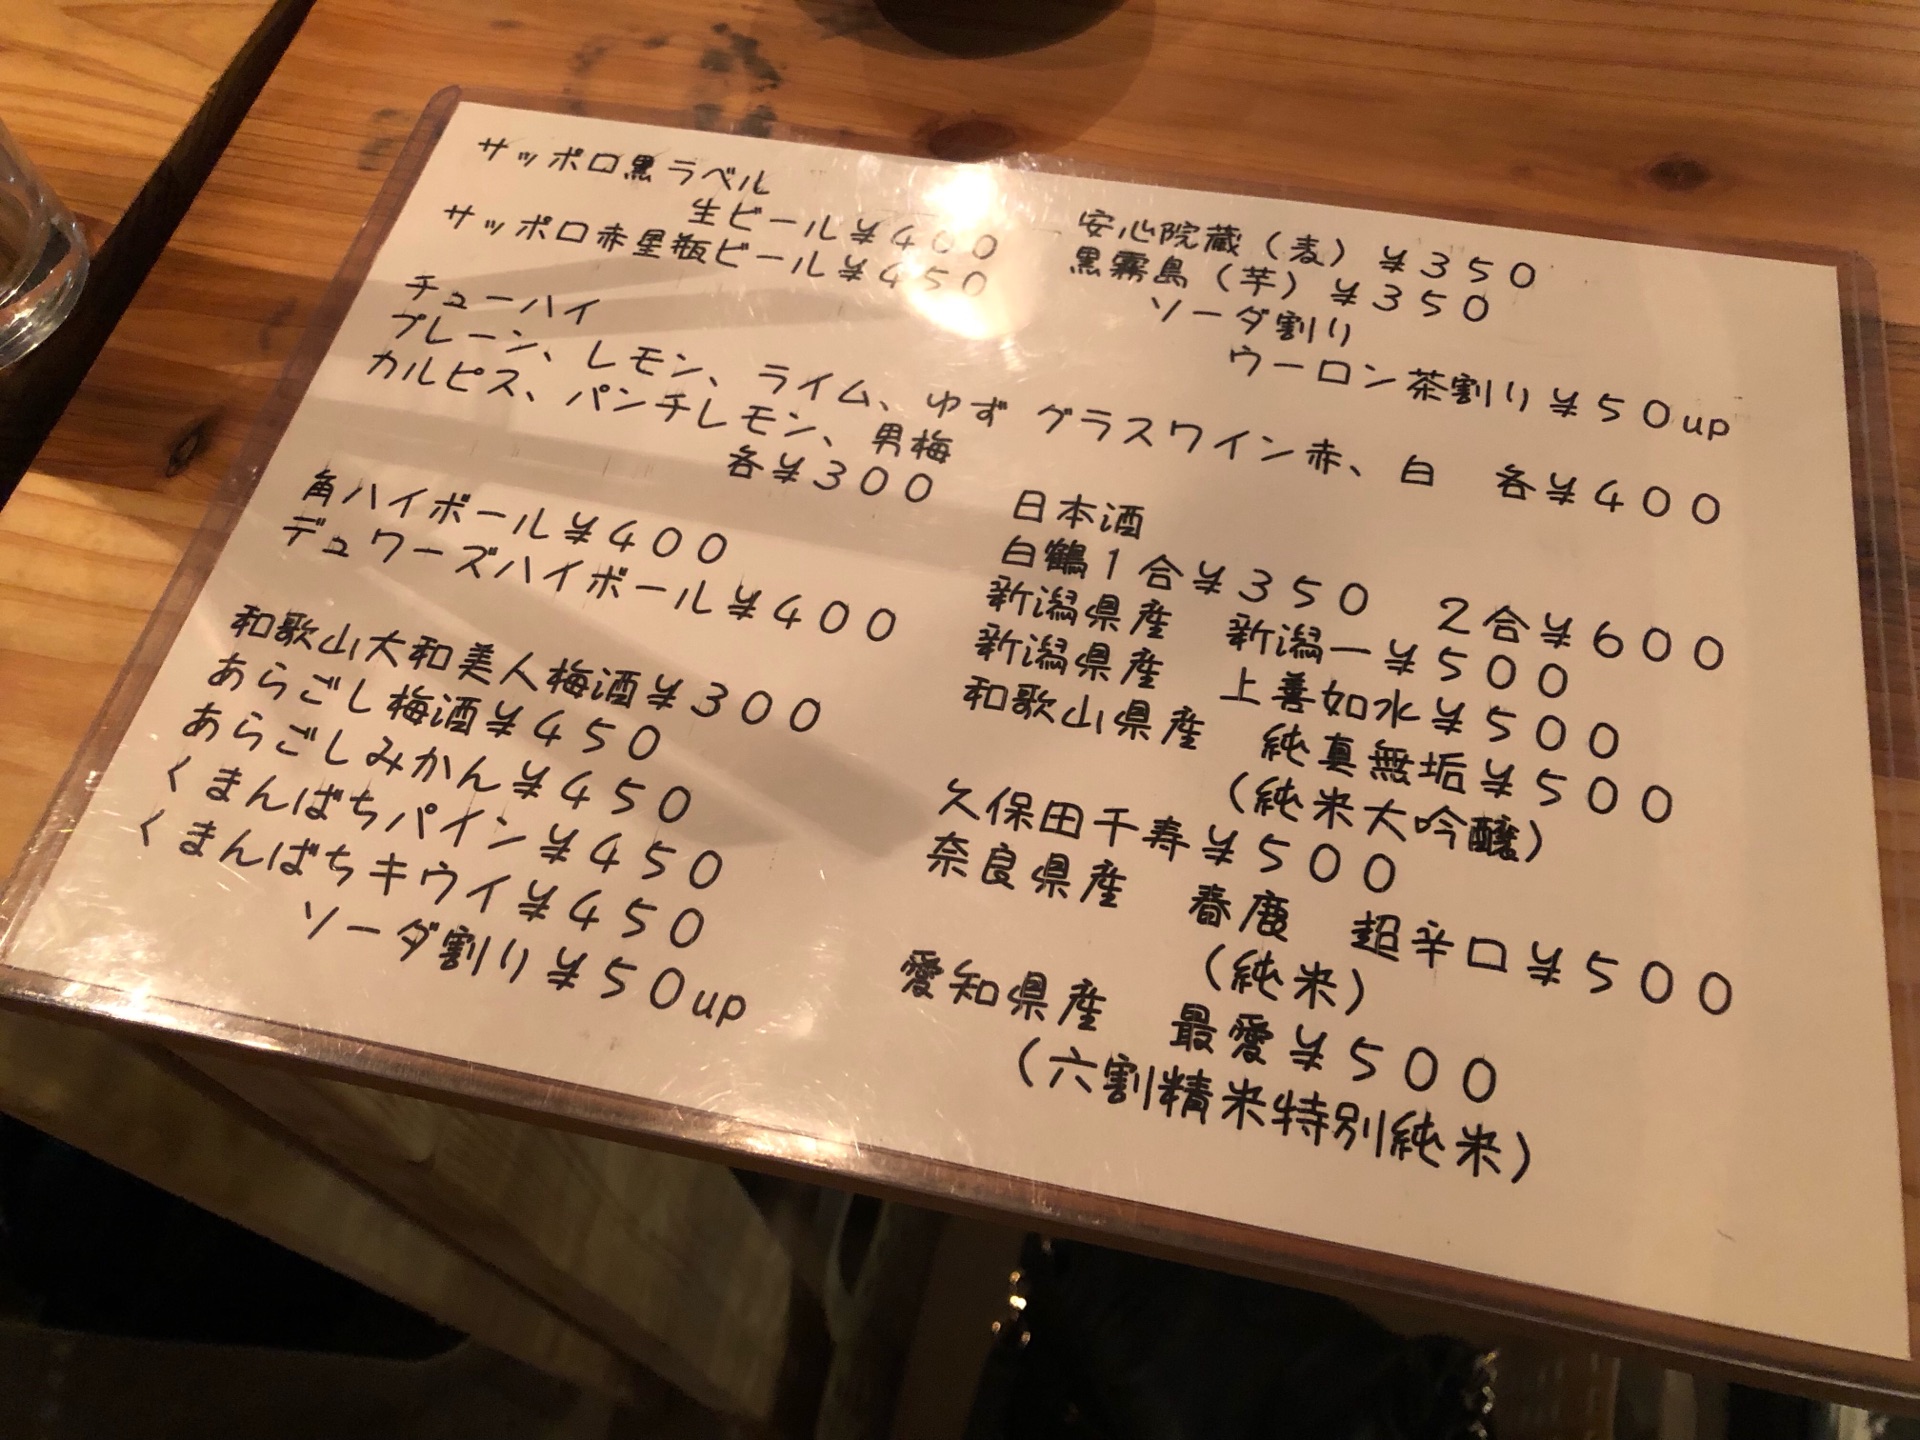 サッポロ黒ラベル
生ビール¥400
サッポロ赤星瓶ビール¥450
チューハイ
プレーン、レモン、ライム、ゆず
カルピス、パンチレモン、男梅
各¥300
角ハイボール¥400
デュワーズハイボール¥400
和歌山大和美人梅酒¥300
あらごし梅酒¥450
あらごしみかん¥450
くまんばちパイン¥450
くまんばちキウイ¥450
ソーダ割り¥50up
安心院蔵（麦）¥350
黒霧島（芋）¥350
ソーダ割り
ウーロン茶割り¥50up
グラスワイン赤、白 各¥400
日本酒
白鶴1合¥350 2合¥600
新潟県産 新潟一¥500
新潟県産 上善如水¥500
和歌山県産 純真無垢¥500
（純米大吟醸）
久保田千寿¥500
奈良県産 春鹿 超辛口¥500
（純米）
愛知県産 最愛¥500
（六割精米特別純米）